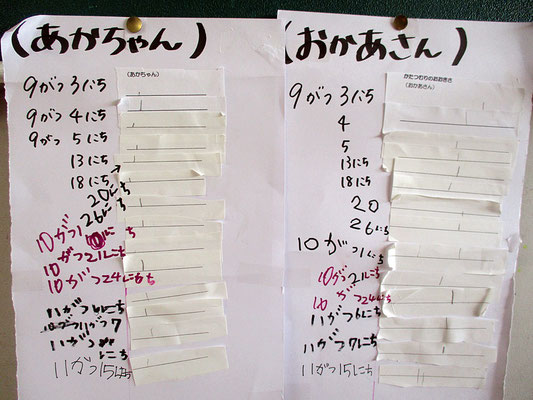 (あかちゃん)
(あかちゃん)
9がつ3にち
9がつ4にち
9がつ5にち
13にち
18にち
20にち
26にち
10がつ21にち
10がつ24にち
11がつ
11がつ15にち
(おかあさん)
かたつむりのおおきさ
(おかあさん)
9がつ3にち
4
5
13にち
18にち
20
26にち
10がつ1にち
10がつ21にち
10がつ24にち
11がつ6にち
11がつ7にち
11がつ15にち